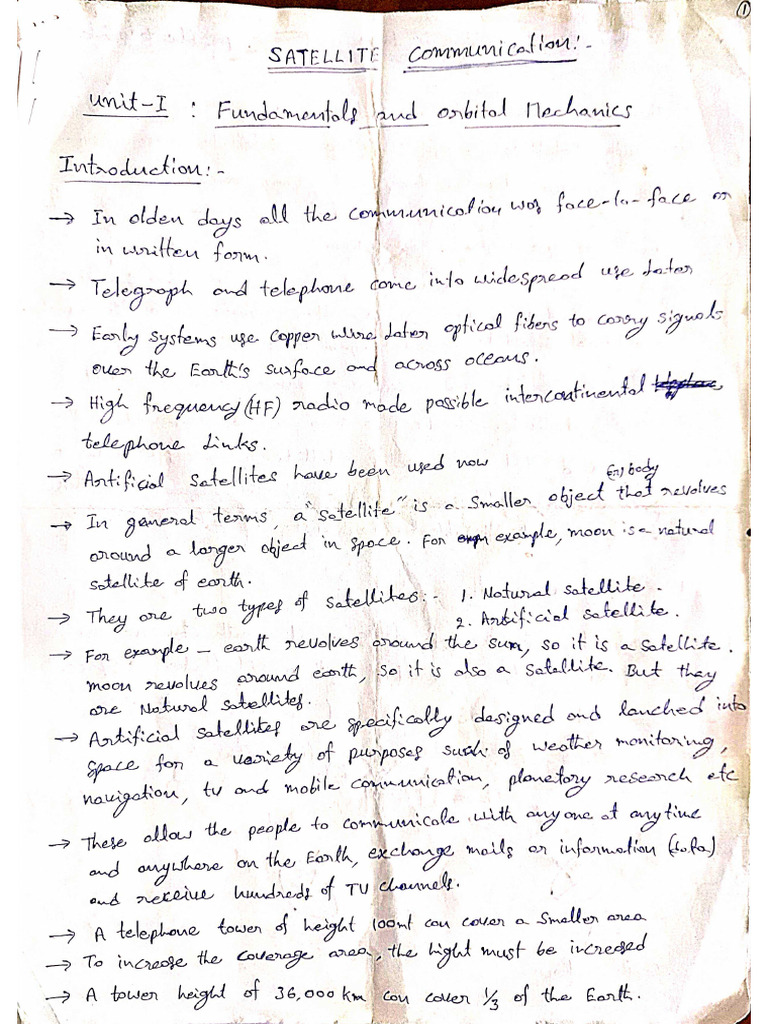 1
SATELLITE Communication:-
Unit-I : Fundamentals and orbital Mechanics
Introduction:-
→ In olden days all the communication was face-to-face or
in written form.
→ Telegraph and telephone come into widespread use later
→ Early systems use copper wire later optical fibers to carry signals
over the Earth's surface and across oceans.
→ High frequency (HF) radio made possible intercontinental
telephone links.
→ Artificial satellites have been used now
(or) body
→ In general terms, a "satellite" is a smaller object that revolves
around a larger object in space. For example, moon is a natural
satellite of earth.
→ They are two types of satellites:- 1. Natural satellite.
2. Artificial satellite.
→ For example - earth revolves around the sun, so it is a satellite.
moon revolves around earth, so it is also a satellite. But they
are Natural satellites.
→ Artificial satellites are specifically designed and lanched into
space for a variety of purposes such of weather monitoring,
navigation, tv and mobile communication, planetory research etc
→ These allow the people to communicate with anyone at anytime
and anywhere on the Earth, exchange mails or information
and receive hundreds of TV channels.
→ A telephone tower of height 100mt can cover a smaller area
→ To increase the coverage area, the hight must be incresed
→ A tower height of 36,000 km can cover 1/3 of the Earth.